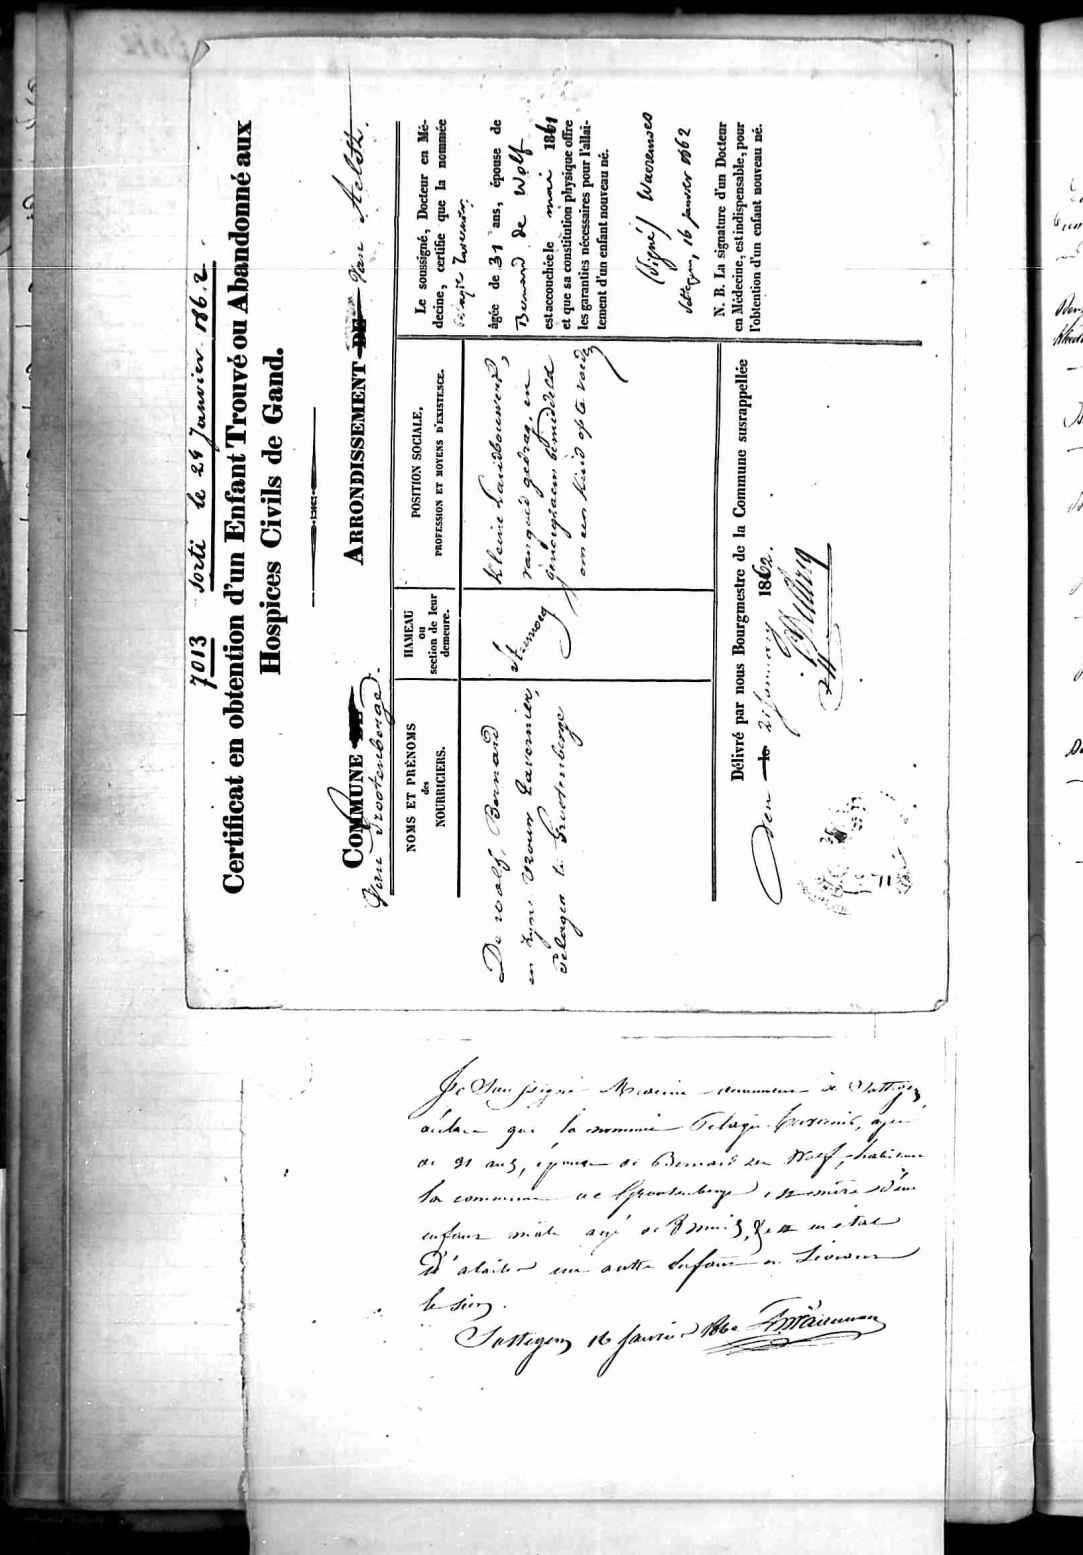 7013 Sorti le 24 Janvier 1862.
Certificat en obtention d'un Enfant Trouvé ou Abandonné aux
Hospices Civils de Gand.
COMMUNE DE
Van Grootenberge.
ARRONDISSEMENT DE Van Aelst.
NOMS ET PRÉNOMS
des
NOURRICIERS.
HAMEAU
ou
section de leur
demeure.
POSITION SOCIALE,
PROFESSION ET MOYENS D'EXISTENCE.
De wolf, Bernard
en zyne vrouw Lavernier,
Pelagia te Grootenberge
kleine landbouwers,
van goed gedrag, en
genoegzaem bemiddeld
om een kind op te voeden
Le soussigné, Docteur en Mé-
decine, certifie que la nommée
âgée de 31 ans, épouse de
Bernard de Wolf
est accouchée le mai 1861
et que sa constitution physique offre
les garanties nécessaires pour l'allai-
tement d'un enfant nouveau né.
(Signé)
Sottegem, 16 janvier 1862
N. B. La signature d'un Docteur
en Médecine, est indispensable, pour
l'obtention d'un enfant nouveau né.
Délivré par nous Bourgmestre de la Commune susrappellée
Den le 21 January 1862.
Je Soussigné Medecin de Sottegem
déclare que la nommée Pelagie, agée
de 31 ans, épouse de Bernard de Wolf, habitant
la commune de Grootenberge, est mère d'un
enfant mâle agé de 8 mois, & est en état
d'alaiter un autre Enfant en
le sien.
Sottegem 16 Janvier 1862